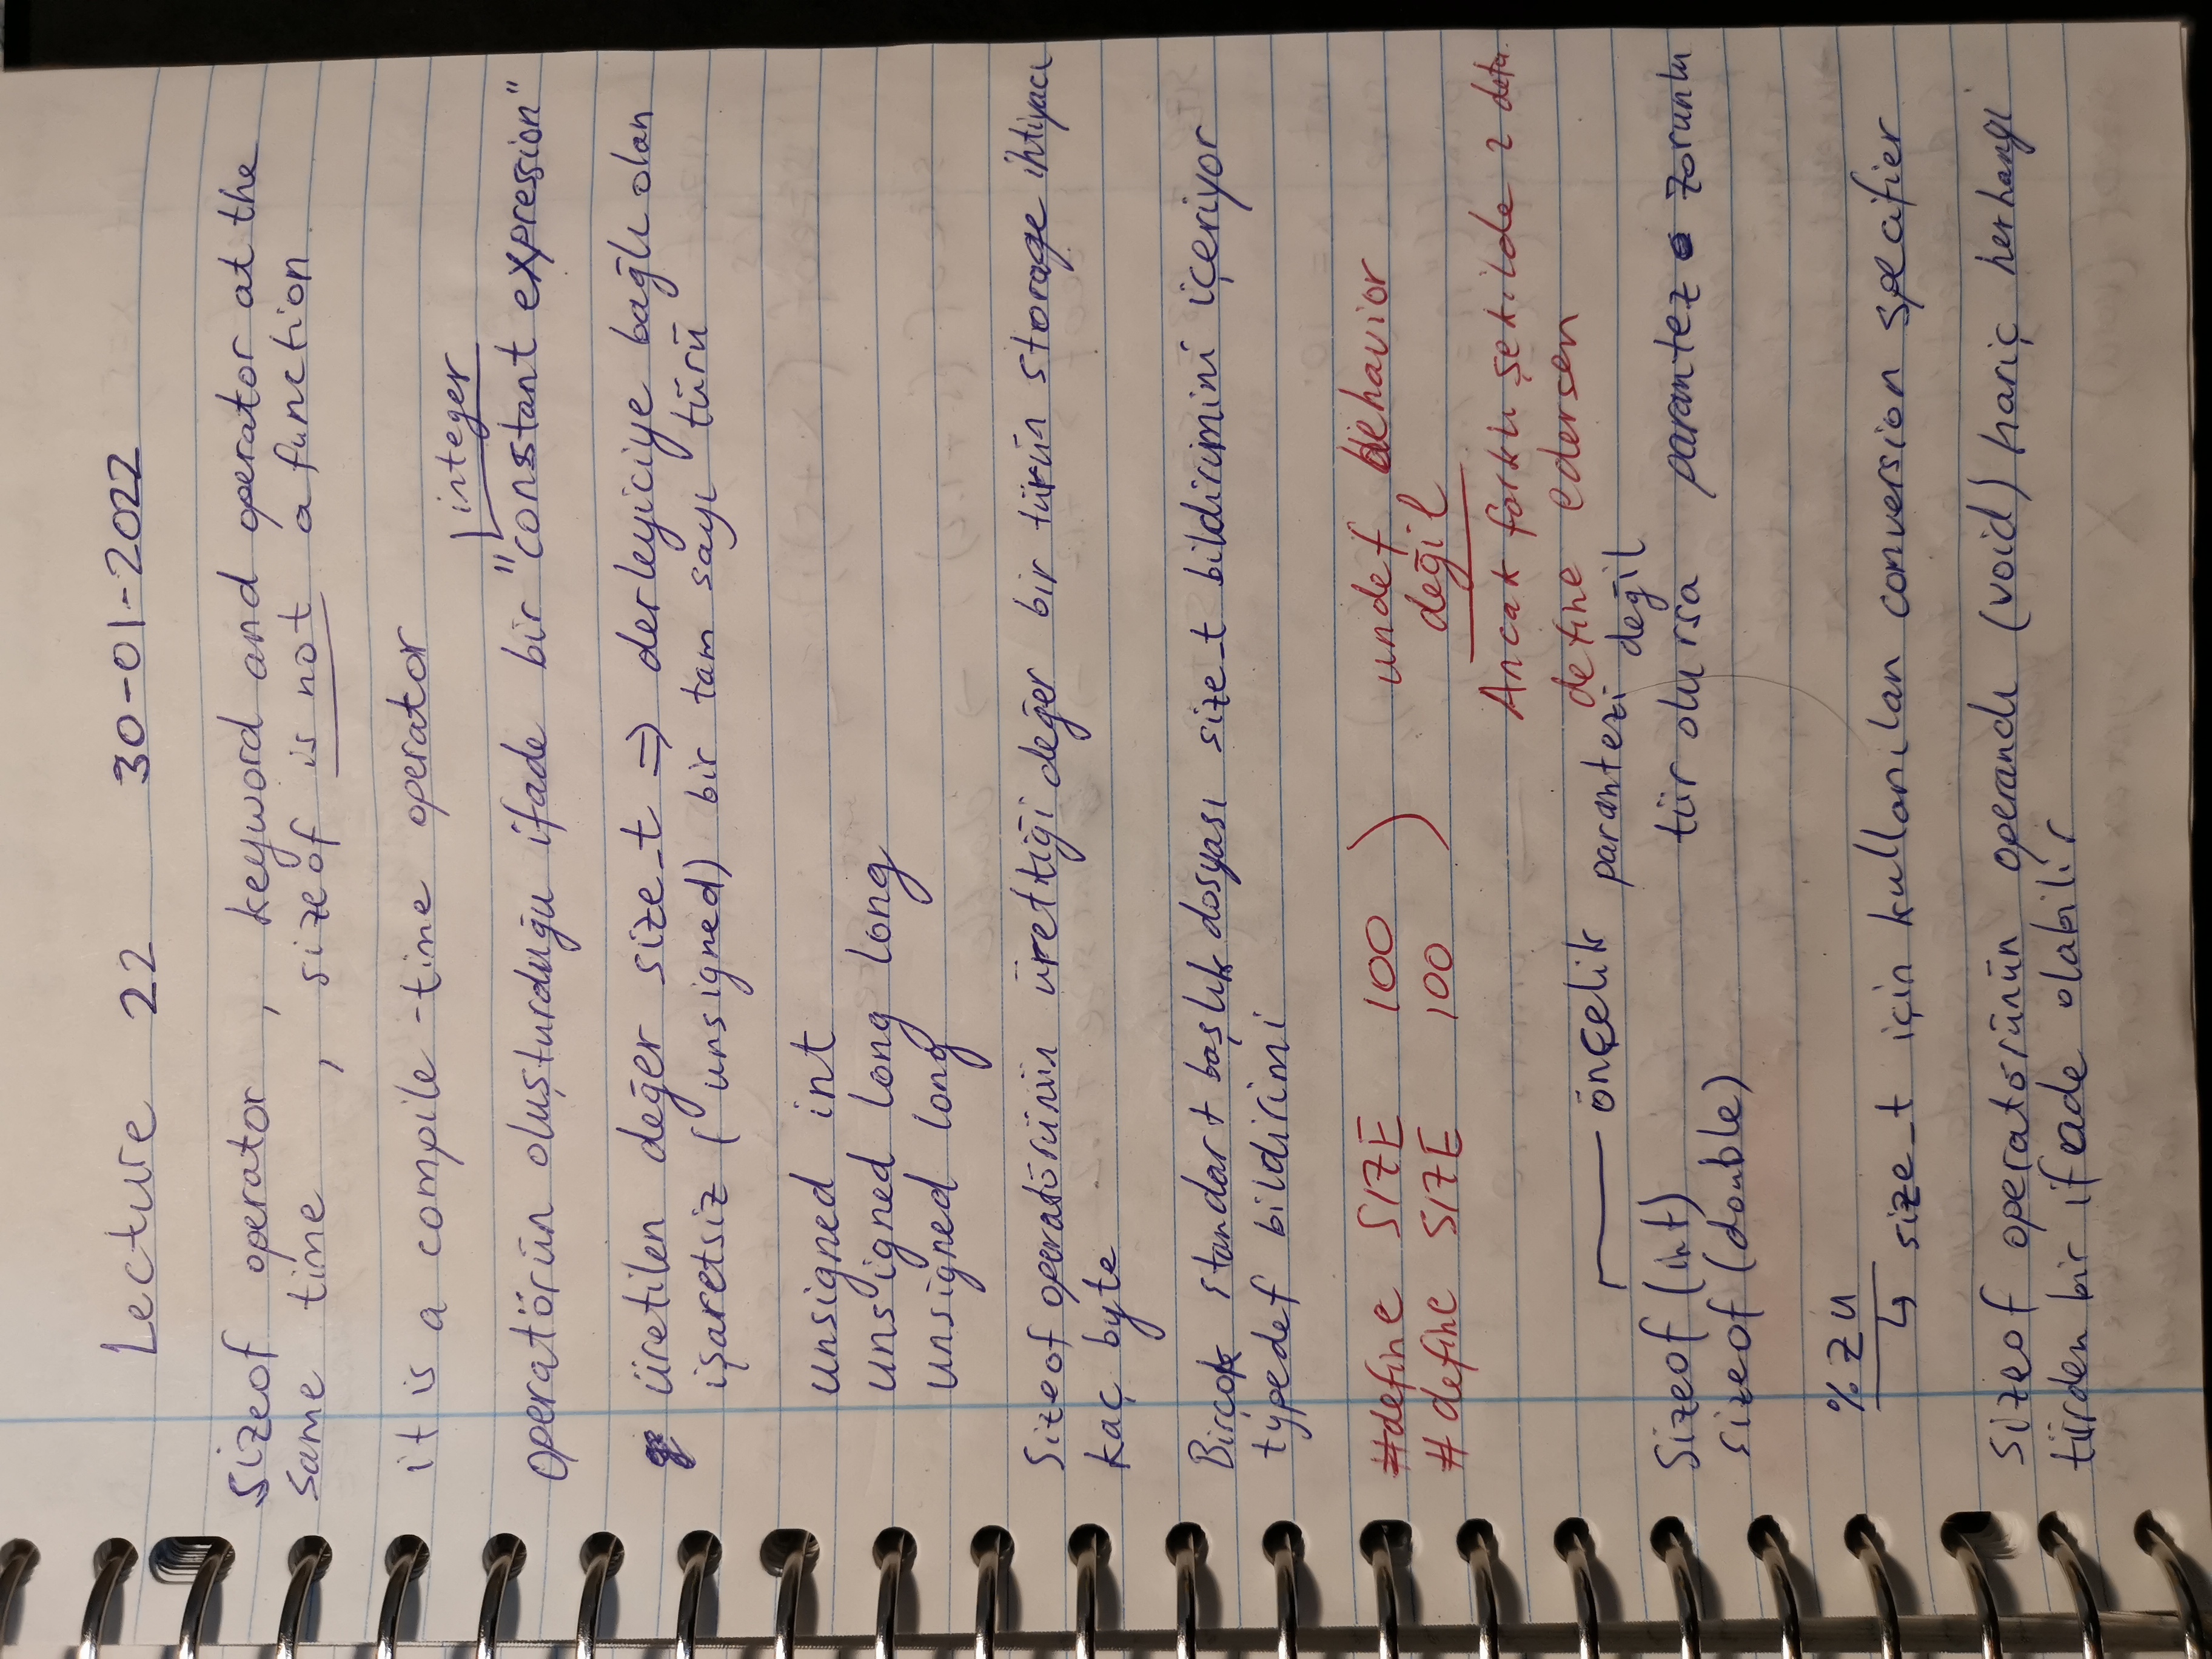 Lecture 22 30-01-2022
sizeof operator , keyword and operator at the
same time , sizeof is not a function
it is a compile-time operator
integer
operatörün oluşturduğu ifade bir "constant expression"
üretilen değer size_t => derleyiciye bağlı olan
işaretsiz (unsigned) bir tam sayı türü
unsigned int
unsigned long long
unsigned long
Sizeof operatörünün ürettiği değer bir türün storage ihtiyacı
kaç byte
Birçok standart başlık dosyası size_t bildirimini içeriyor
typedef bildirimi
#define SIZE 100 ) undef behavior
#define SIZE 100 değil
Ancak farklı şekilde 2 defa
define edersen
önçelik parantezi değil
Sizeof (int) tür olursa parantez zorunlu
sizeof (double)
%zu
↳ size_t için kullanılan conversion specifier
sizeof operatörünün operandı (void) hariç herhangi
türden bir ifade olabilir